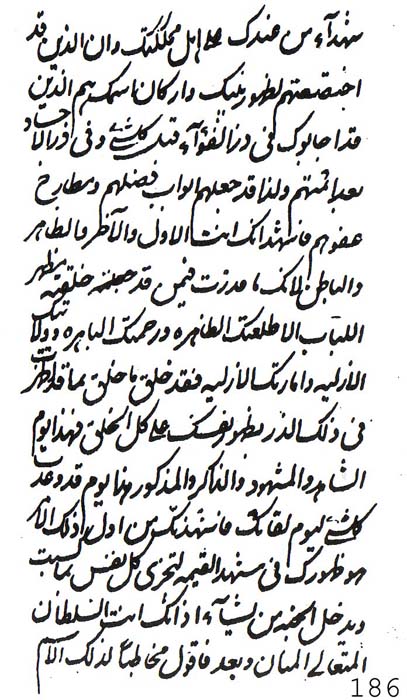 شهدآء من عندك على اهل مملكتك وان الذين قد
اختصصتهم لظهور بينك واركان اسمك هم الذين
قد اجابوك فى ذر الفؤآء قبل كلشئ وفى ذر الاجساد
بعد ائمتهم ولذا قد جعلهم ابواب فضلهم ومطارح
عفوهم فاشهد انك انت الاول والآخر والظاهر
والباطن لانك ما قدرت فيمن قد جعلته خلقته مظهر
اللباب الا طلعتك الظاهره ورحمتك الباهره وولايتك
الازليه وامارتك الازليه فقد خلق ما خلق بما قد اظهرت
فى ذلك الذر بظهور نفسك على كل الخلق فهذا يوم
الشاهد والمشهود والذاكر والمذكور هذا يوم قد وعدت
كلشئ ليوم لقائك فاشهدنك من اول ذلك الامر
هو ظهورك فى مشهد القيمه لتجزى كل نفس بما كسبت
ويدخل الجنه من يشآء اذ انك انت السلطان
المتعالى المنان وبعد فاقول مخاطبا لذلك الاسم
186